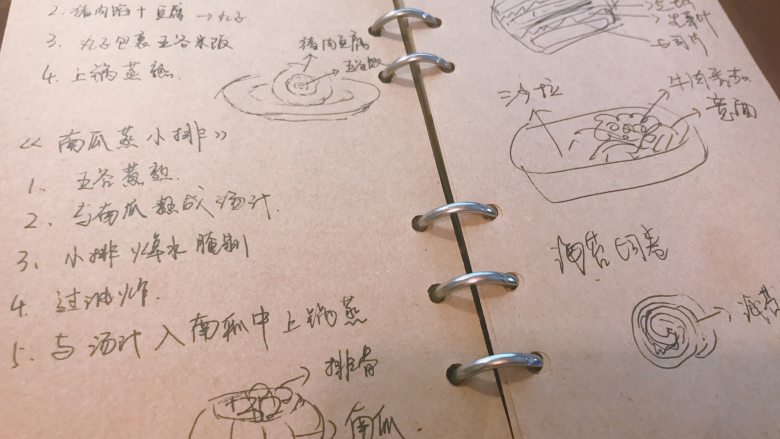 2. 猪肉馅+豆腐→丸子
3. 丸子包裹五谷米饭
4. 上锅蒸熟.
猪肉豆腐
五谷饭
《南瓜蒸小排》
1. 五谷蒸熟.
2. 与南瓜 成汤汁.
3. 小排 焯水 腌制
4. 过油炸.
5. 与汤汁入南瓜中上锅蒸
排骨
南瓜
沙拉
意面
海苔